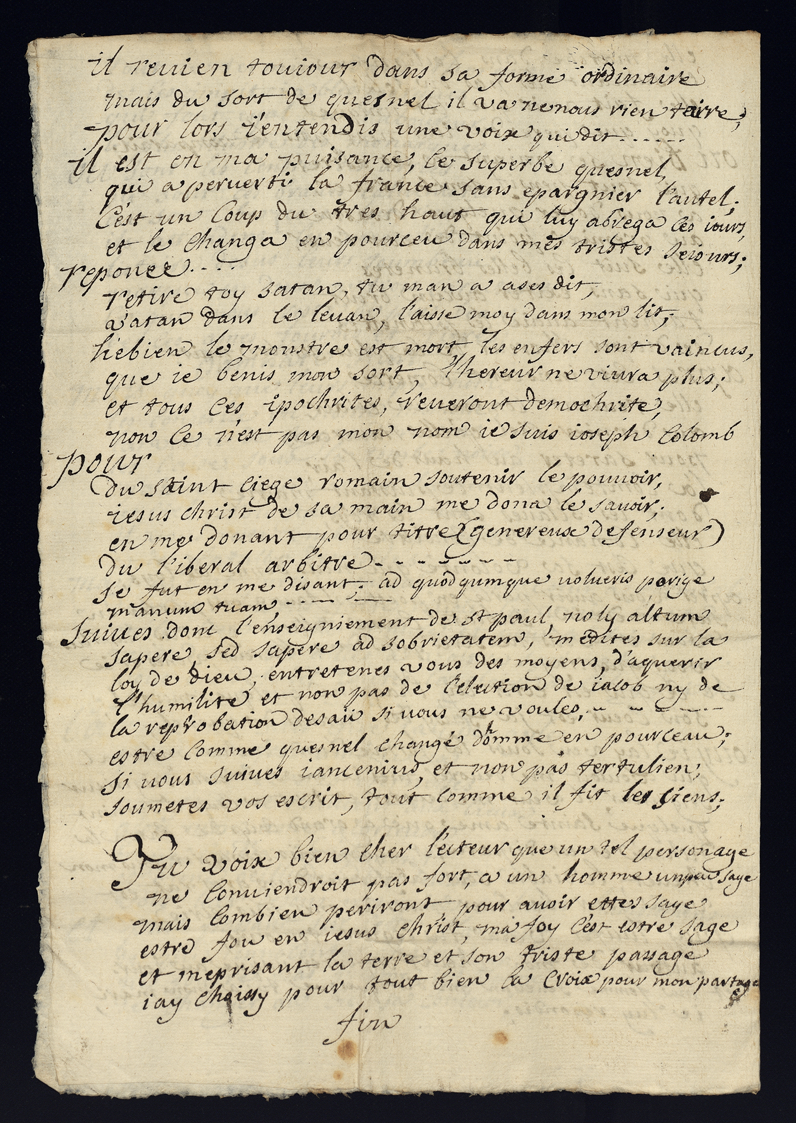 il reuien touiour dans sa forme ordinaire
mais du sort de quesnel il va ne nous rien taire;
pour lors i'entendis une voix qui dit......
il est en ma puisance, le superbe quesnel,
qui a perverti la france sans epargnier l'autel;
C'est un Coup du tres haut qui luy abrega Ces iours,
et le Changa en pourceu dans mes tristes seiours;
reponce....
retire toy satan, tu m'an a ases dit,
vatan dans le levan, l'aisse moy dans mon lit;
hebien le monstre est mort, les enfers sont vaincus,
que ie benis mon sort, l'hereur ne viura plus;
et tous Ces ipochrites, reveront demochrite,
non Ce n'est pas mon nom ie suis ioseph Colomb
pour
du saint Ciege romain soutenir le pouvoir,
iesus christ de sa main me dona le savoir;
en me donant pour titre (genereux defenseur)
du l'iberal arbitre - - - - - - -
se fut en me disant; ad quodqumque volueris porige
manum tuam - - - - -
suives donc l'enseigniement de st paul, noly altum
sapere, sed sapere ad sobrietatem, medites sur la
loy de dieu, entretenes vous des moyens, d'aquerir
l'humilite, et non pas de l'election de iacob ny de
la reprobation desaü si vous ne voules, - - - -
estre Comme quesnel changé d'homme en pourceau;
si vous suives iancenius, et non pas tertulien;
soumetes vos escrit, tout comme il fit les siens;
Tu voix bien cher l'ecteur que un tel personage
ne Conviendroit pas fort, a un homme un peu sage
mais Combien periront pour avoir ettes sage
estre fou en iesus christ, ma foy C'est estre sage
et meprisant la terre et son triste passage
i'ay choissy pour tout bien la Croix pour mon partage
fin